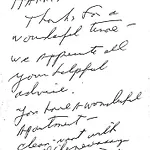 Thanks for a
wonderful time –
we appreciate all
your helpful
advice.
You have a wonderful
apartment –
clean, with